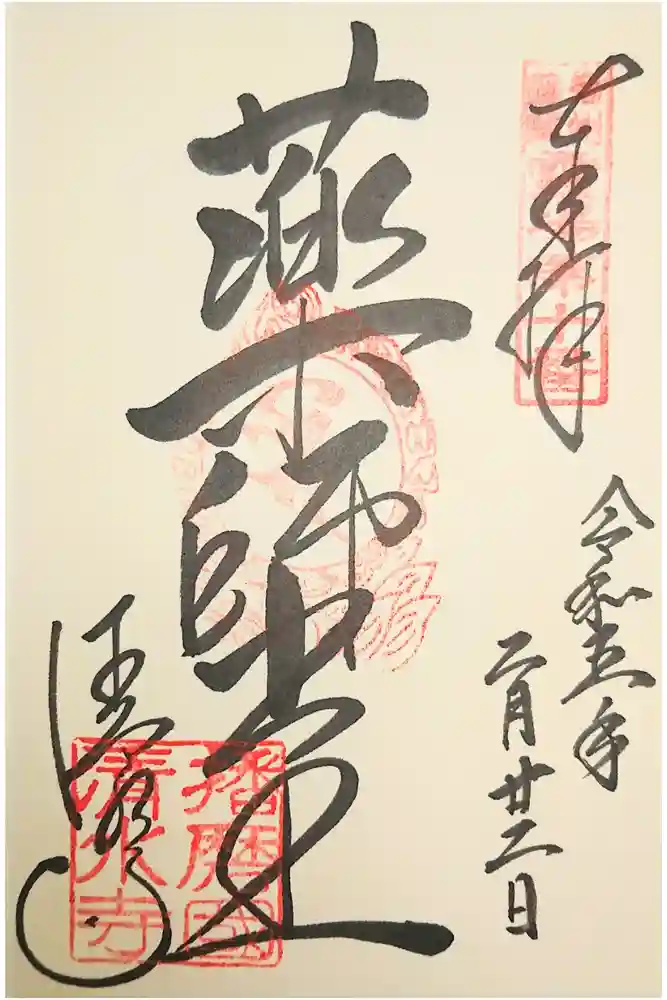 奉拝
令和五年
二月廿二日
藥師堂
清水寺
播磨國
清水寺